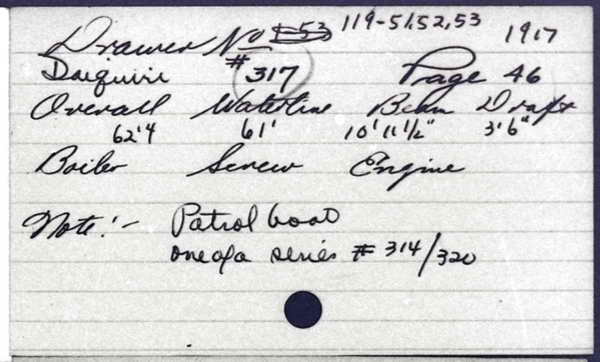 Drawer No 119-51,52,53 1917
Daiquiri #317 Page 46
Overall Waterline Beam Draft
62'4 61' 10'11½" 3'6"
Boiler Screw Engine
Note:- Patrol boat
one of a series # 314/320